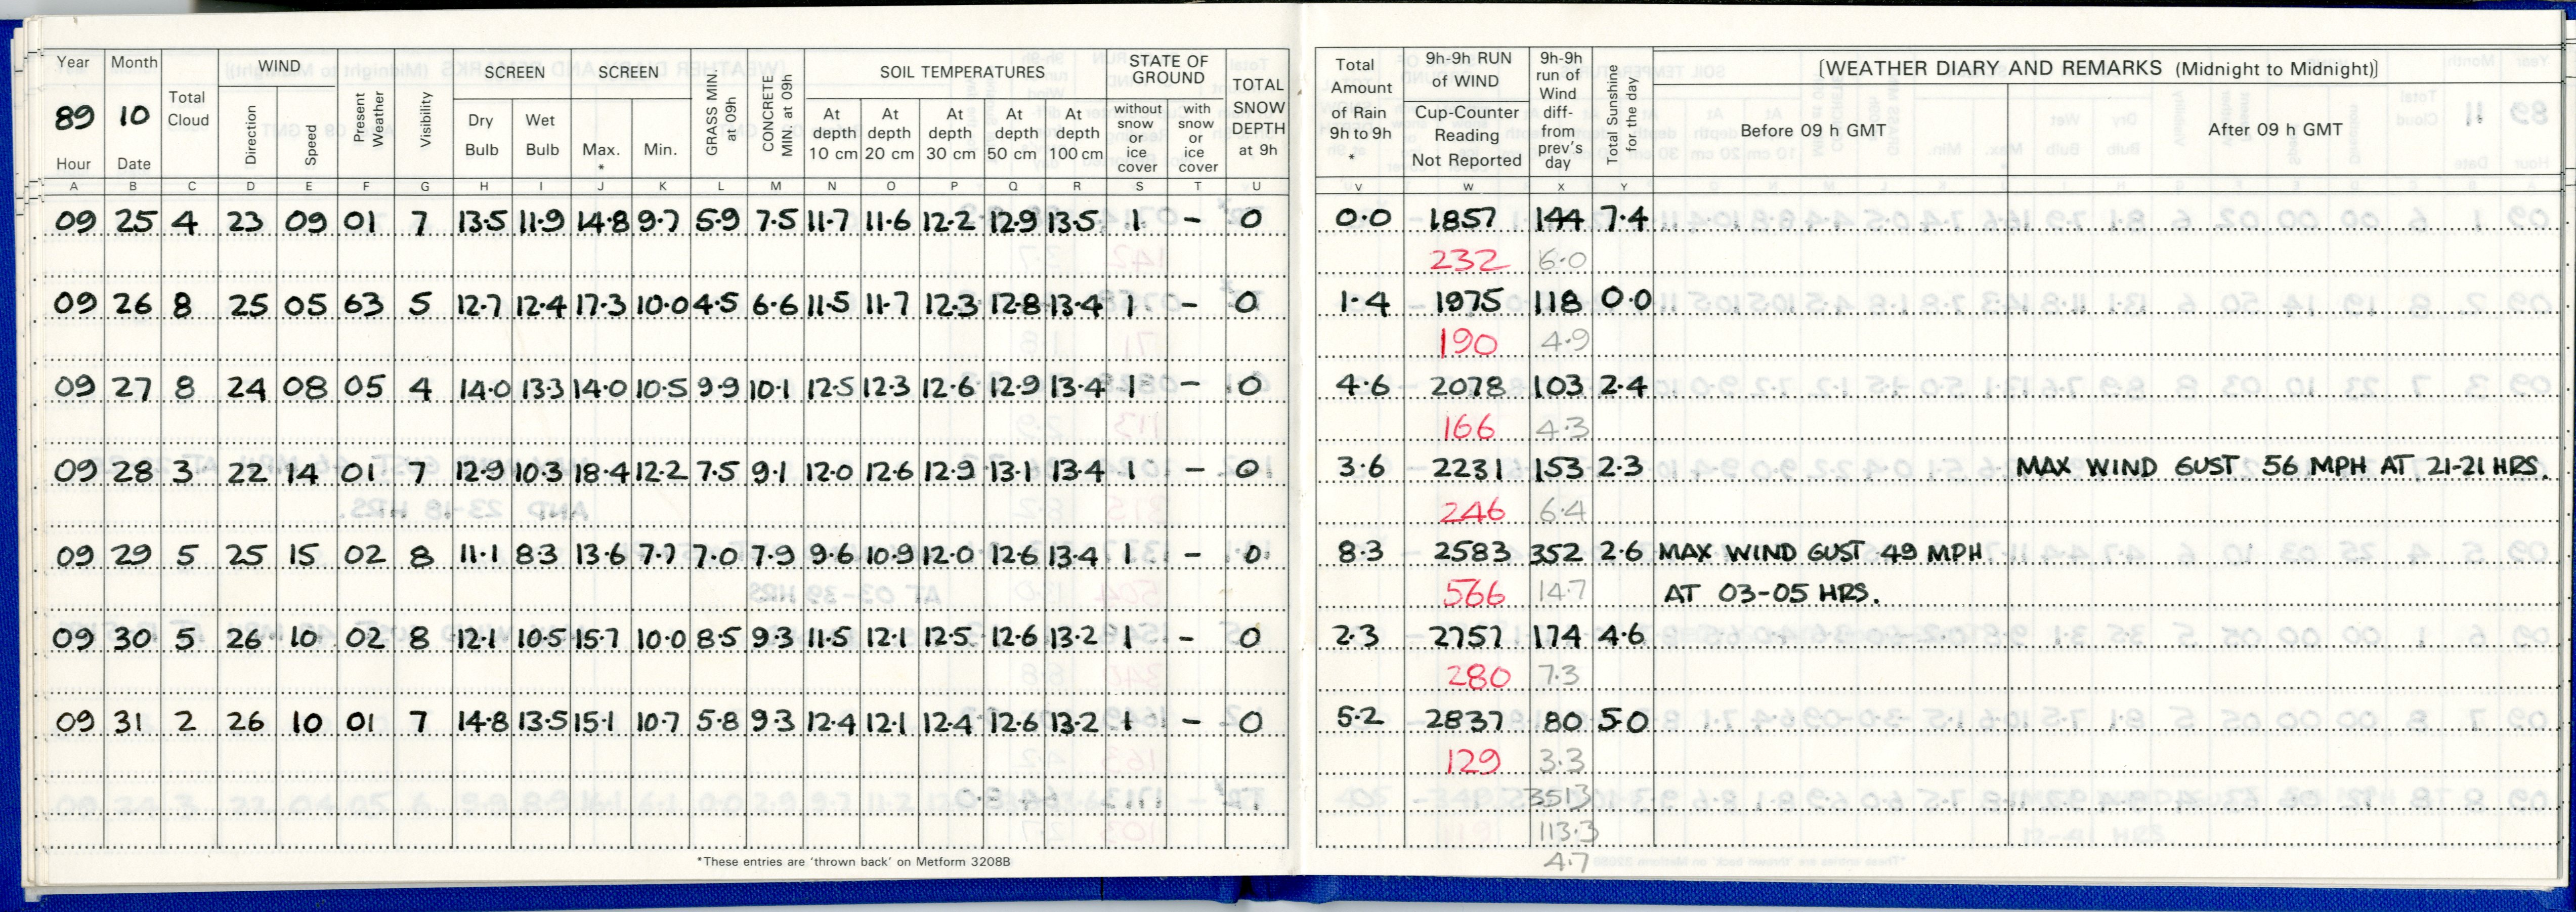 Year Month Total Cloud WIND Present Weather Visibility SCREEN SCREEN GRASS MIN. at 09h CONCRETE MIN. at 09h SOIL TEMPERATURES STATE OF GROUND TOTAL SNOW DEPTH at 9h
89 10 Direction Speed Dry Bulb Wet Bulb Max. * Min. At depth 10 cm At depth 20 cm At depth 30 cm At depth 50 cm At depth 100 cm without snow or ice cover with snow or ice cover
Hour Date
A B C D E F G H I J K L M N O P Q R S T U
09 25 4 23 09 01 7 13.5 11.9 14.8 9.7 5.9 7.5 11.7 11.6 12.2 12.9 13.5 1 - 0
09 26 8 25 05 63 5 12.7 12.4 17.3 10.0 4.5 6.6 11.5 11.7 12.3 12.8 13.4 1 - 0
09 27 8 24 08 05 4 14.0 13.3 14.0 10.5 9.9 10.1 12.5 12.3 12.6 12.9 13.4 1 - 0
09 28 3 22 14 01 7 12.9 10.3 18.4 12.2 7.5 9.1 12.0 12.6 12.9 13.1 13.4 1 - 0
09 29 5 25 15 02 8 11.1 8.3 13.6 7.7 7.0 7.9 9.6 10.9 12.0 12.6 13.4 1 - 0
09 30 5 26 10 02 8 12.1 10.5 15.7 10.0 8.5 9.3 11.5 12.1 12.5 12.6 13.2 1 - 0
09 31 2 26 10 01 7 14.8 13.5 15.1 10.7 5.8 9.3 12.4 12.1 12.4 12.6 13.2 1 - 0
*These entries are 'thrown back' on Metform 3208B
Total Amount of Rain 9h to 9h * 9h-9h RUN of WIND Cup-Counter Reading Not Reported 9h-9h run of Wind diff- from prev's day Total Sunshine for the day [WEATHER DIARY AND REMARKS (Midnight to Midnight)]
Before 09 h GMT After 09 h GMT
V W X Y
0.0 1857 144 7.4
232 6.0
1.4 1975 118 0.0
190 4.9
4.6 2078 103 2.4
166 4.3
3.6 2231 153 2.3 MAX WIND GUST 56 MPH AT 21-21 HRS.
246 6.4
8.3 2583 352 2.6 MAX WIND GUST 49 MPH
566 14.7 AT 03-05 HRS.
2.3 2757 174 4.6
280 7.3
5.2 2837 80 5.0
129 3.3
3513
113.3
4.7